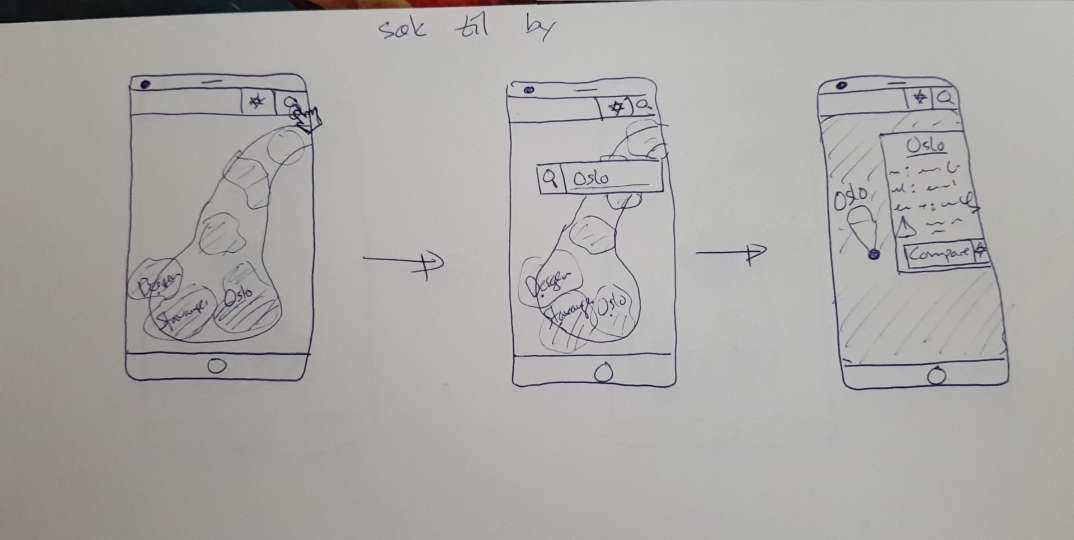 søk til by
Bergen
Stavanger
Oslo
Oslo
Bergen
Stavanger
Oslo
Oslo
Oslo
Compare